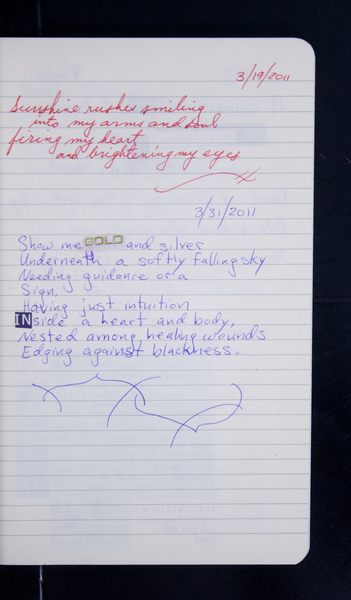 3/19/2011
Sunshine rushes smiling
into my arms and soul
firing my heart
and brightening my eyes
3/31/2011
Show me GOLD and silver
Underneath a softly falling sky
Needing guidance or a
Sign,
Having just intuition
INside a heart and body,
Nested among healing wounds
Edging against blackness.